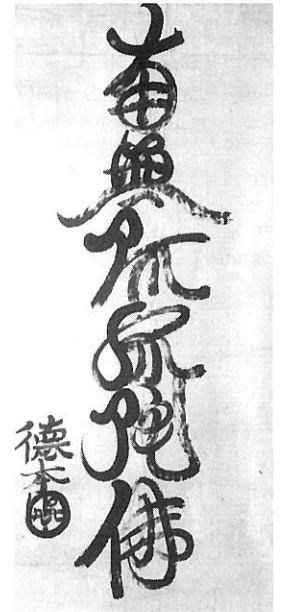 南無阿弥陀佛
德本